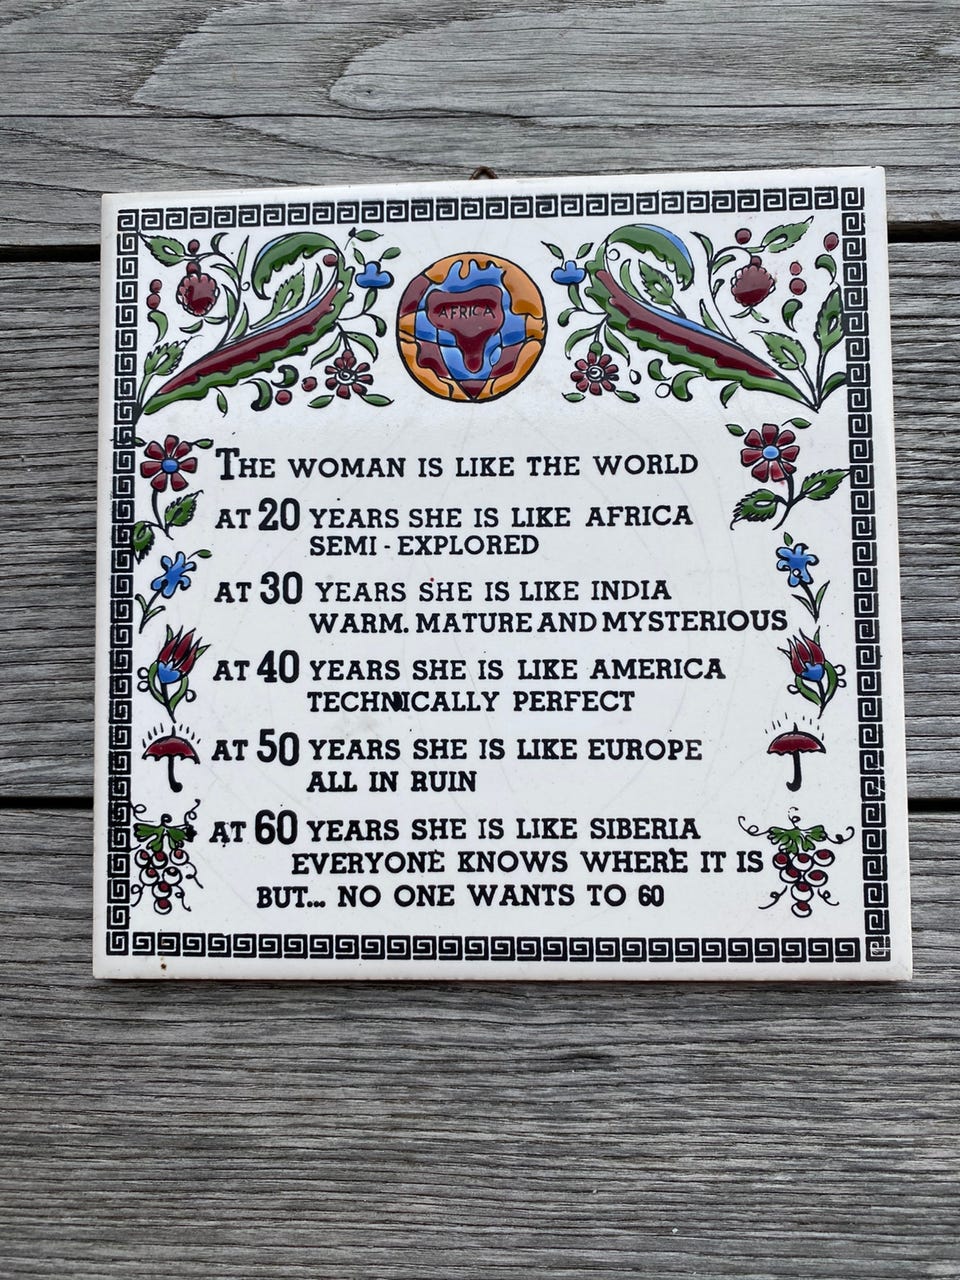 AFRICA
THE WOMAN IS LIKE THE WORLD
AT 20 YEARS SHE IS LIKE AFRICA
SEMI - EXPLORED
AT 30 YEARS SHE IS LIKE INDIA
WARM. MATURE AND MYSTERIOUS
AT 40 YEARS SHE IS LIKE AMERICA
TECHNICALLY PERFECT
AT 50 YEARS SHE IS LIKE EUROPE
ALL IN RUIN
AT 60 YEARS SHE IS LIKE SIBERIA
EVERYONE KNOWS WHERE IT IS
BUT... NO ONE WANTS TO GO